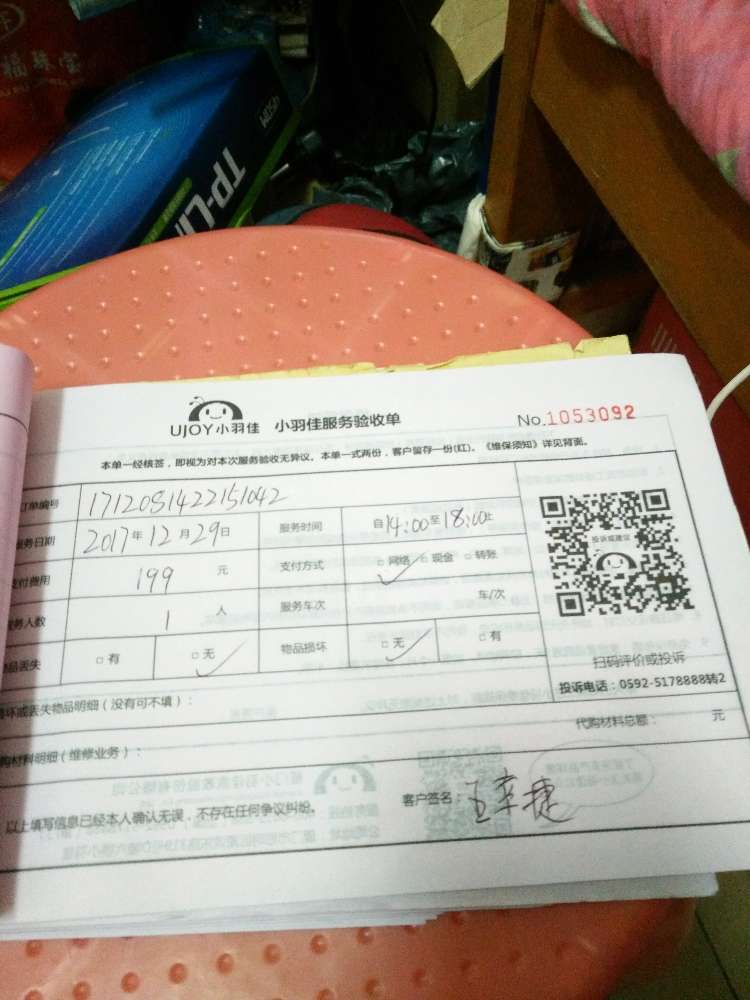 福珠宝
TP-LI
UJOY小羽佳 小羽佳服务验收单
No.1053092
本单一经核签，即视为对本次服务验收无异议。本单一式两份，客户留存一份(红)。《维保须知》详见背面。
订单编号 1712081422151042
服务日期 2017年12月29日 服务时间 自14:00至18:00止
支付费用 199 元 支付方式 □网络 □现金 □转账
服务人数 1 人 服务车次 车/次
物品丢失 □有 □无 物品损坏 □无 □有
投诉或建议
扫码评价或投诉
投诉电话：0592-5178888转2
损坏或丢失物品明细（没有可不填）：
代购材料总额： 元
代购材料明细（维修业务）：
以上填写信息已经本人确认无误，不存在任何争议纠纷。
客户签名：